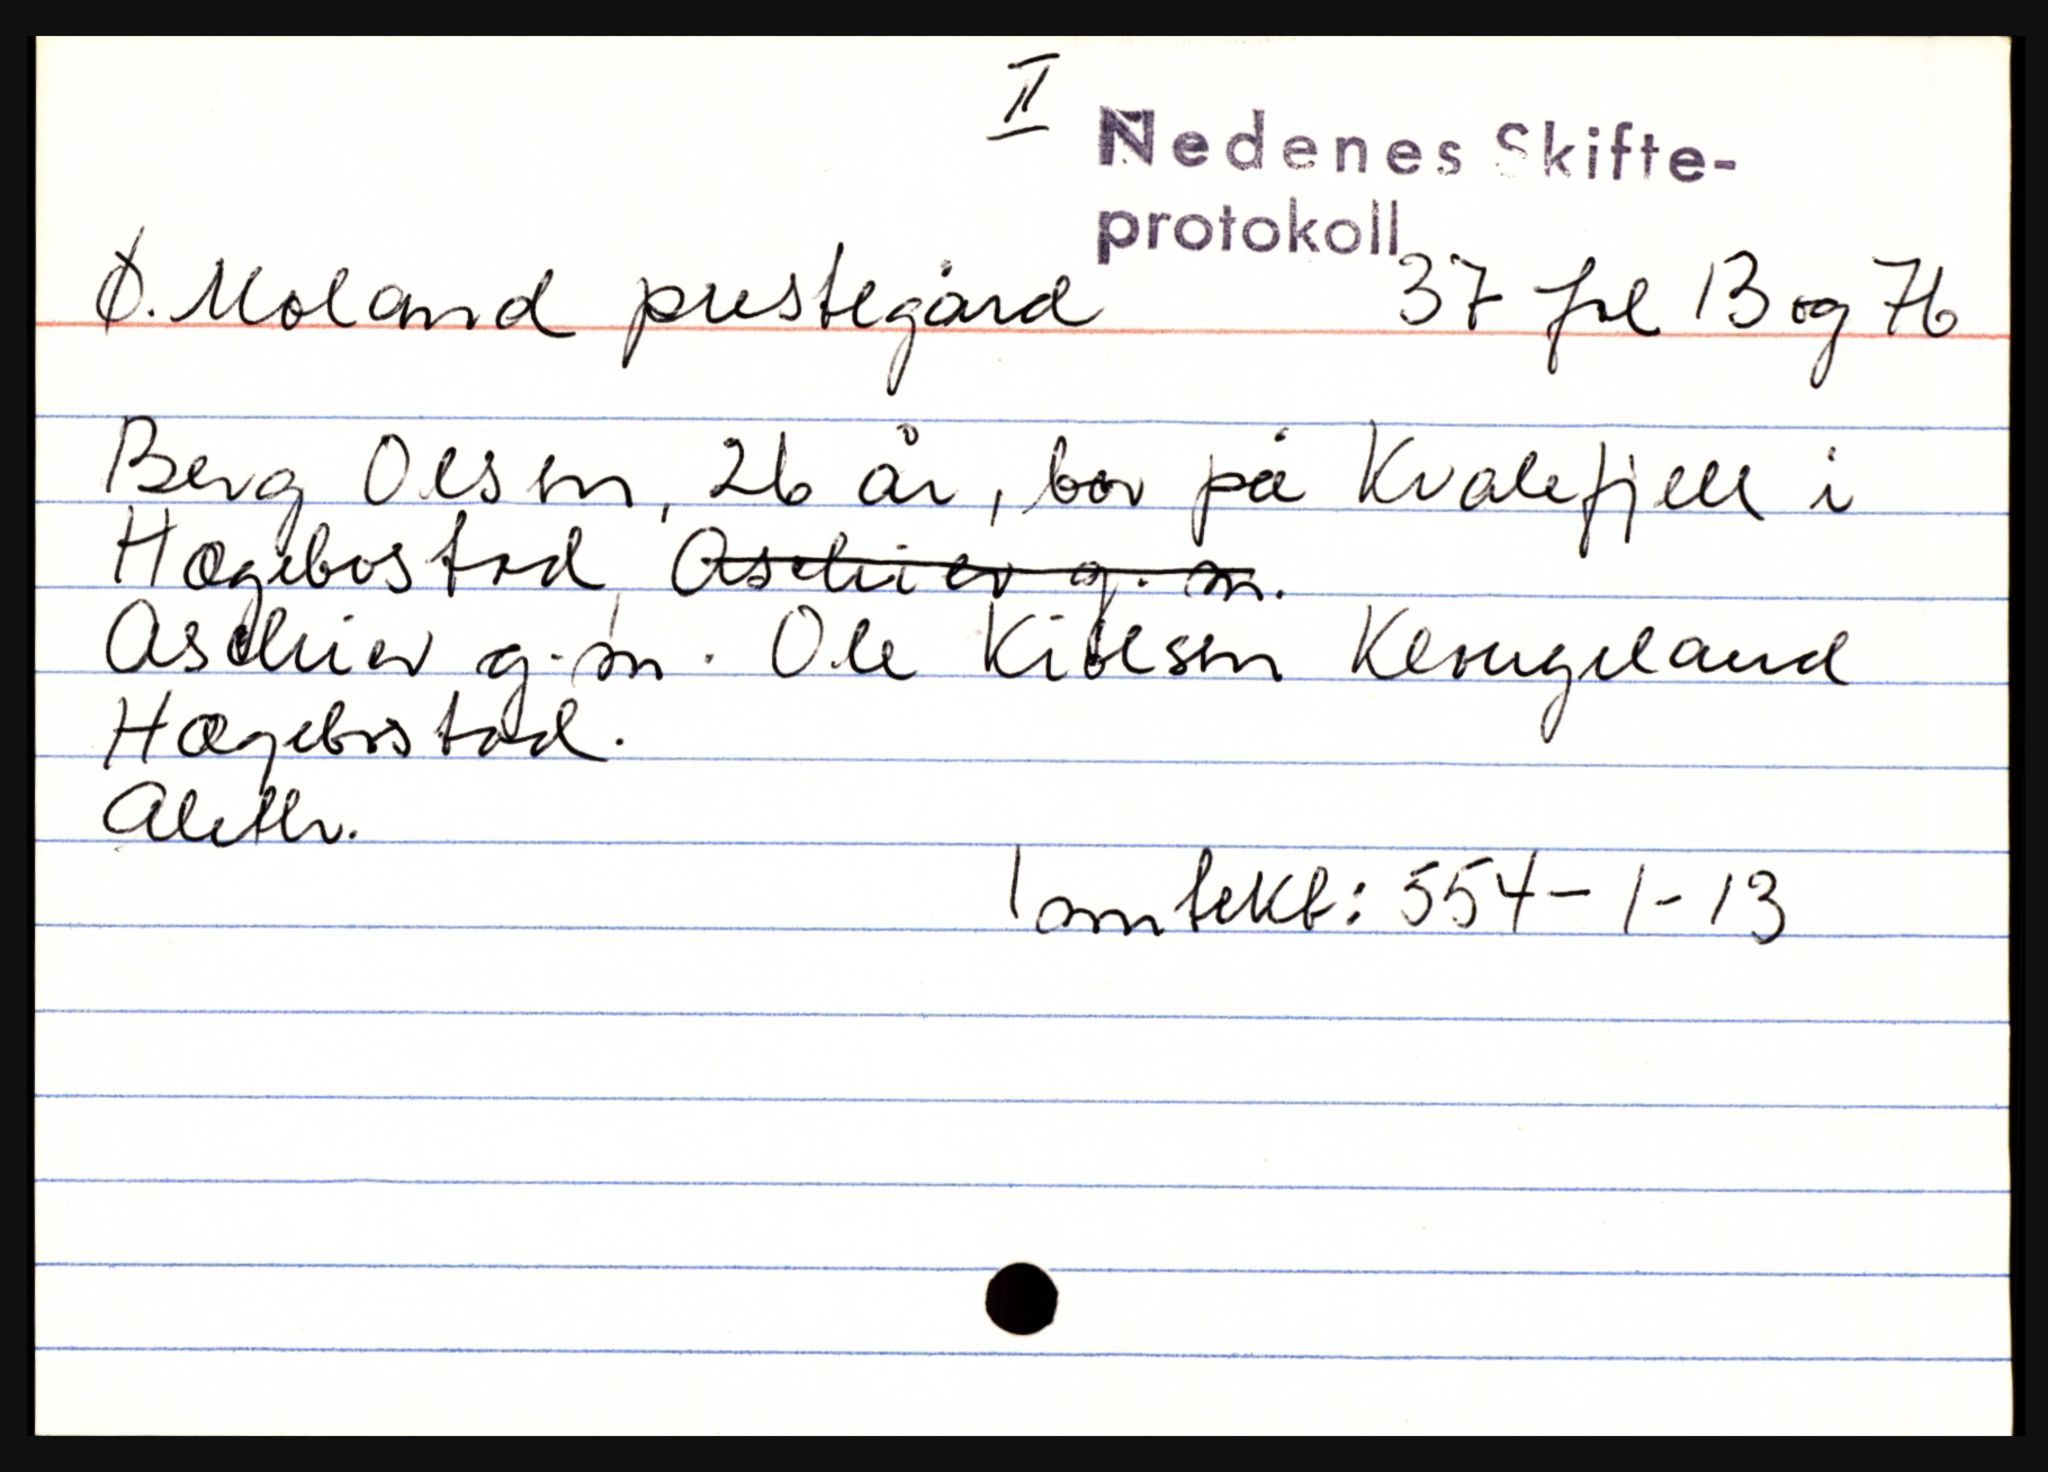 II
Nedenes Skifte-
protokoll
Ø. Moland prestegård 37 fol 13 og 76
Berg Olsen, 26 år, bor på Kvalefjell i
Hægebostad, Aschier g. m.
Aschier g. m. Ole Kittelsen Klungeland
Hægebostad.
Alethe.
1 omtekt: 554-1-13